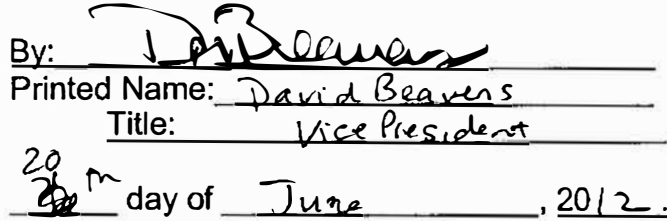 By: D Beavens
Printed Name: David Beavens
Title: Vice President
20
th day of June, 2012.